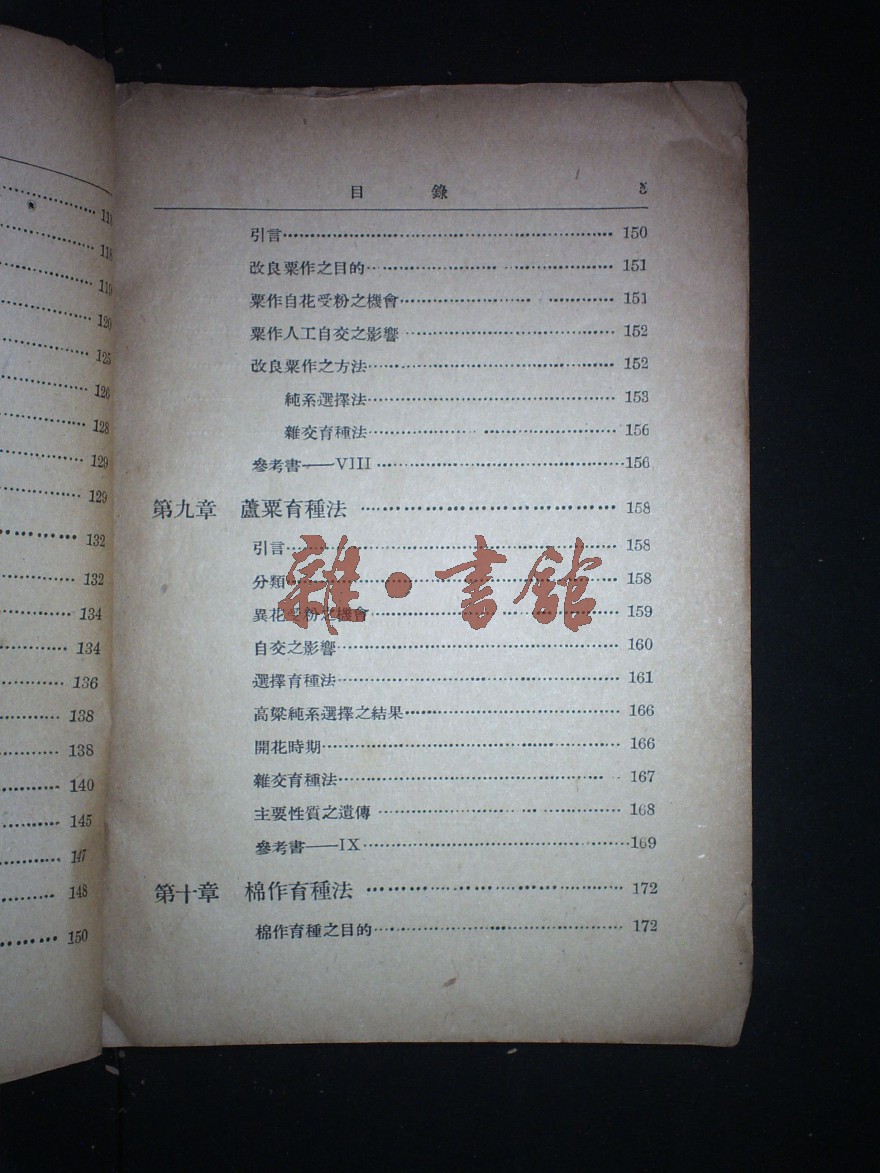 111
118
119
120
125
126
128
129
129
132
132
134
134
136
138
138
140
145
147
148
150
目 錄
引言 150
改良粟作之目的 151
粟作自花受粉之機會 151
粟作人工自交之影響 152
改良粟作之方法 152
純系選擇法 153
雜交育種法 156
參考書——VIII 156
第九章 蘆粟育種法 158
引言 158
分類 158
異花受粉之機會 159
自交之影響 160
選擇育種法 161
高粱純系選擇之結果 166
開花時期 166
雜交育種法 167
主要性質之遺傳 168
參考書——IX 169
第十章 棉作育種法 172
棉作育種之目的 172
雜·書館